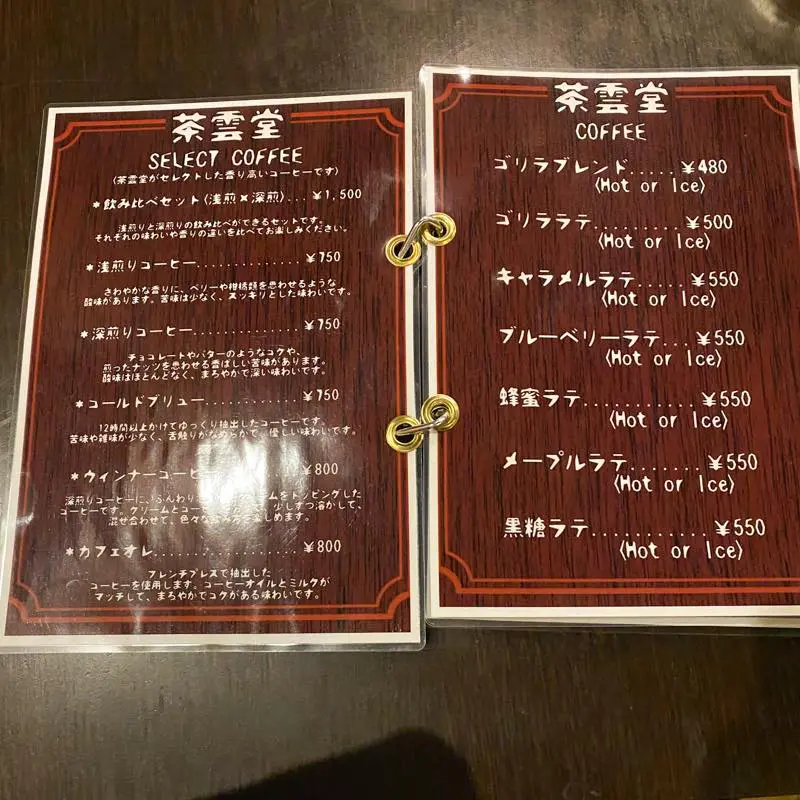 茶雲堂
SELECT COFFEE
(茶雲堂がセレクトした香り高いコーヒーです)
*飲み比べセット(浅煎×深煎)...¥1,500
浅煎りと深煎りの飲み比べができるセットです。
それぞれの味わいや香りの違いを比べてお楽しみください。
*浅煎りコーヒー..............¥750
さわやかな香りに、ベリーや柑橘類を思わせるような
酸味があります。苦味は少なく、スッキリとした味わいです。
*深煎りコーヒー..............¥750
チョコレートやバターのようなコクや、
煎ったナッツを思わせる香ばしい苦味があります。
酸味はほとんどなく、まろやかで深い味わいです。
*コールドブリュー............¥750
12時間以上かけてゆっくり抽出したコーヒーです。
苦味や雑味が少なく、舌触りがなめらかで、優しい味わいです。
*ウィンナーコーヒー ¥800
深煎りコーヒーに、ふんわり クリームをトッピングした
コーヒーです。クリームとコーヒー 少しずつ溶かして、
混ぜ合わせて、色々な 楽しめます。
*カフェオレ..................¥800
フレンチプレスで抽出した
コーヒーを使用します。コーヒーオイルとミルクが
マッチして、まろやかでコクがある味わいです。
茶雲堂
COFFEE
ゴリラブレンド.....¥480
(Hot or Ice)
ゴリララテ.........¥500
(Hot or Ice)
キャラメルラテ.....¥550
(Hot or Ice)
ブルーベリーラテ...¥550
(Hot or Ice)
蜂蜜ラテ...........¥550
(Hot or Ice)
メープルラテ.......¥550
(Hot or Ice)
黒糖ラテ...........¥550
(Hot or Ice)